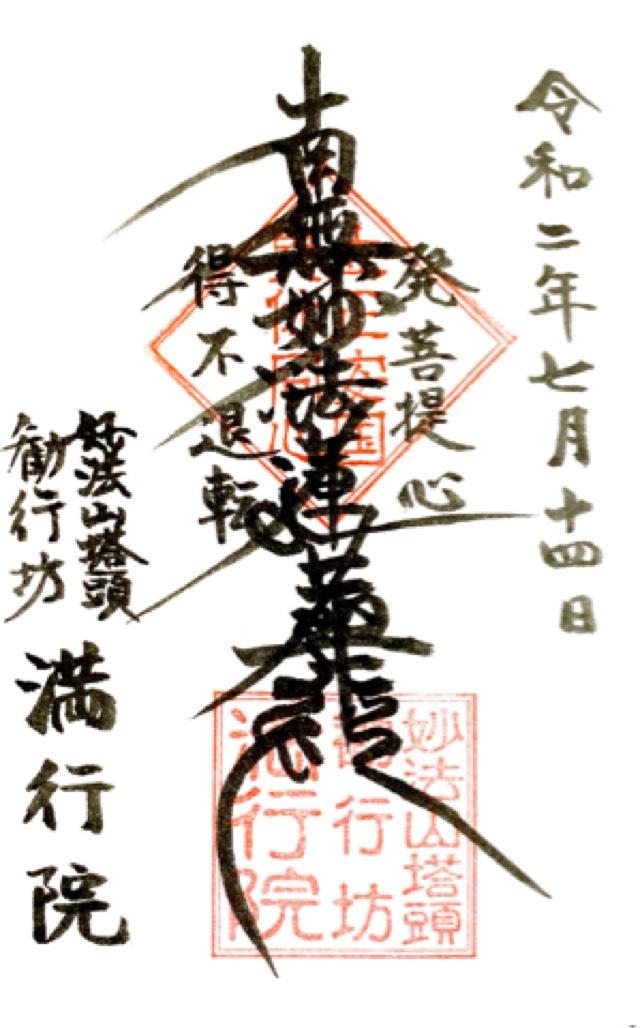 令和二年七月十四日
発菩提心
南無妙法蓮華経
得不退転
妙法山塔頭
勧行坊
満行院
妙法山塔頭
勧行坊
満行院